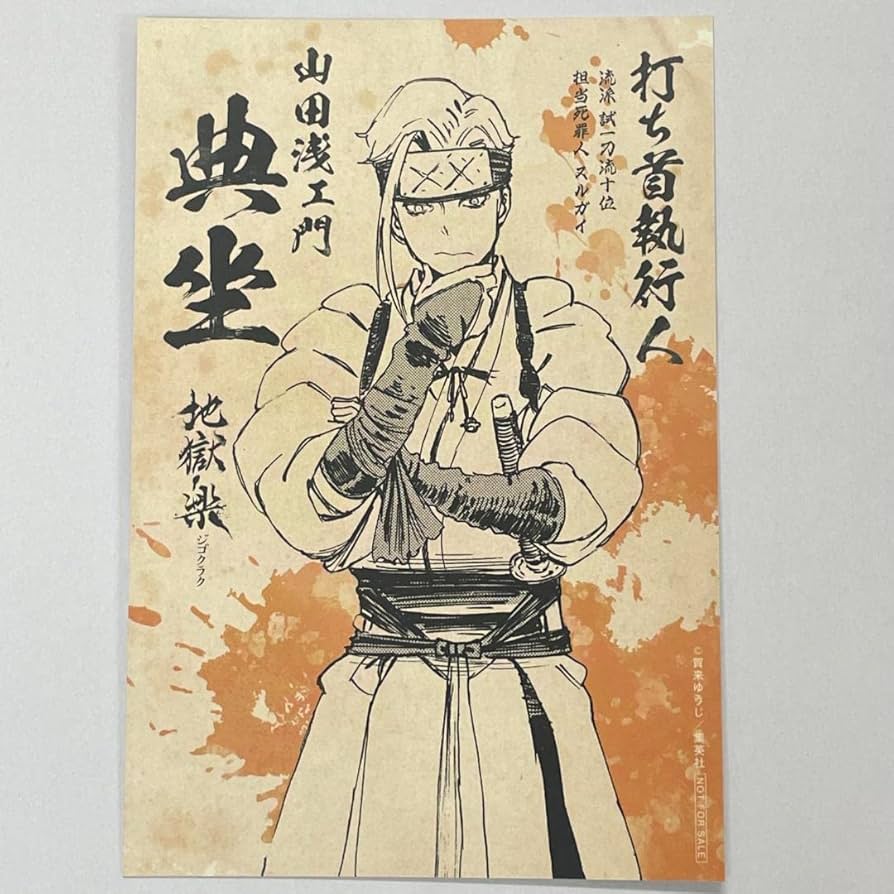 打ち首執行人
流派 試一刀流十位
担当死罪人 ヌルガイ
山田浅ェ門
典坐
地獄楽
ジゴクラク
©賀来ゆうじ／集英社 NOT FOR SALE